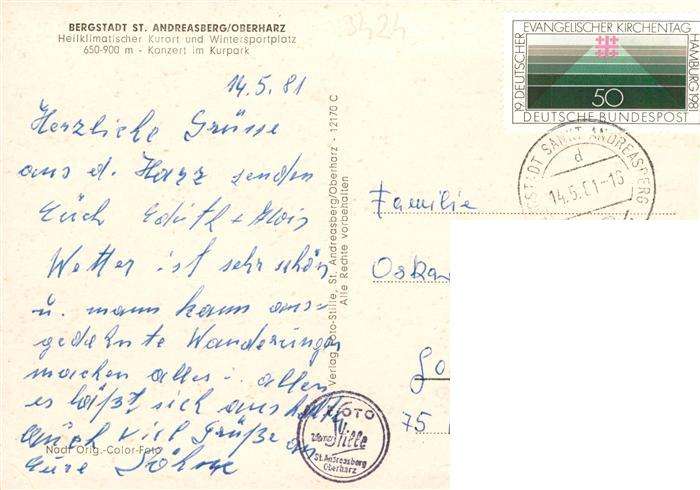 BERGSTADT ST. ANDREASBERG/OBERHARZ
Heilklimatischer Kurort und Wintersportplatz
650-900 m - Konzert im Kurpark
14.5.81
Herzliche Grüsse
aus d. Harz senden
Euch Edith + Alois
Wetter ist sehr schön
u. mann kann aus-
gedehnte Wanderungen
machen alles i. allen
es läßt sich aushalten
auch viel Grüße an
Eure Söhne
Nach Orig.-Color-Foto
Verlag Foto-Stille, St. Andreasberg/Oberharz - 12170 C
Alle Rechte vorbehalten
FOTO
Stille
St. Andreasberg
Oberharz
19. DEUTSCHER EVANGELISCHER KIRCHENTAG HAMBURG 1981
50
DEUTSCHE BUNDESPOST
BERGSTADT SANKT ANDREASBERG
d
14.5.81-16
Familie
Oskar
75
3424